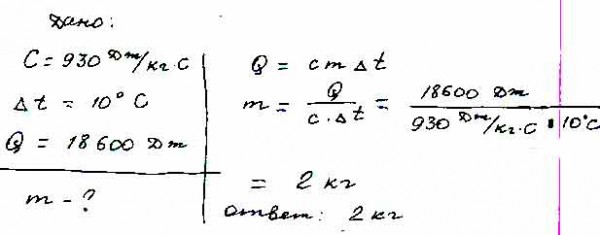 Дано:
C = 930 Дж/кг·C
Δt = 10°C
Q = 18600 Дж
m - ?
Q = cmΔt
m = Q / c·Δt = 18600 Дж / 930 Дж/кг·C · 10°C
= 2 кг
ответ: 2 кг